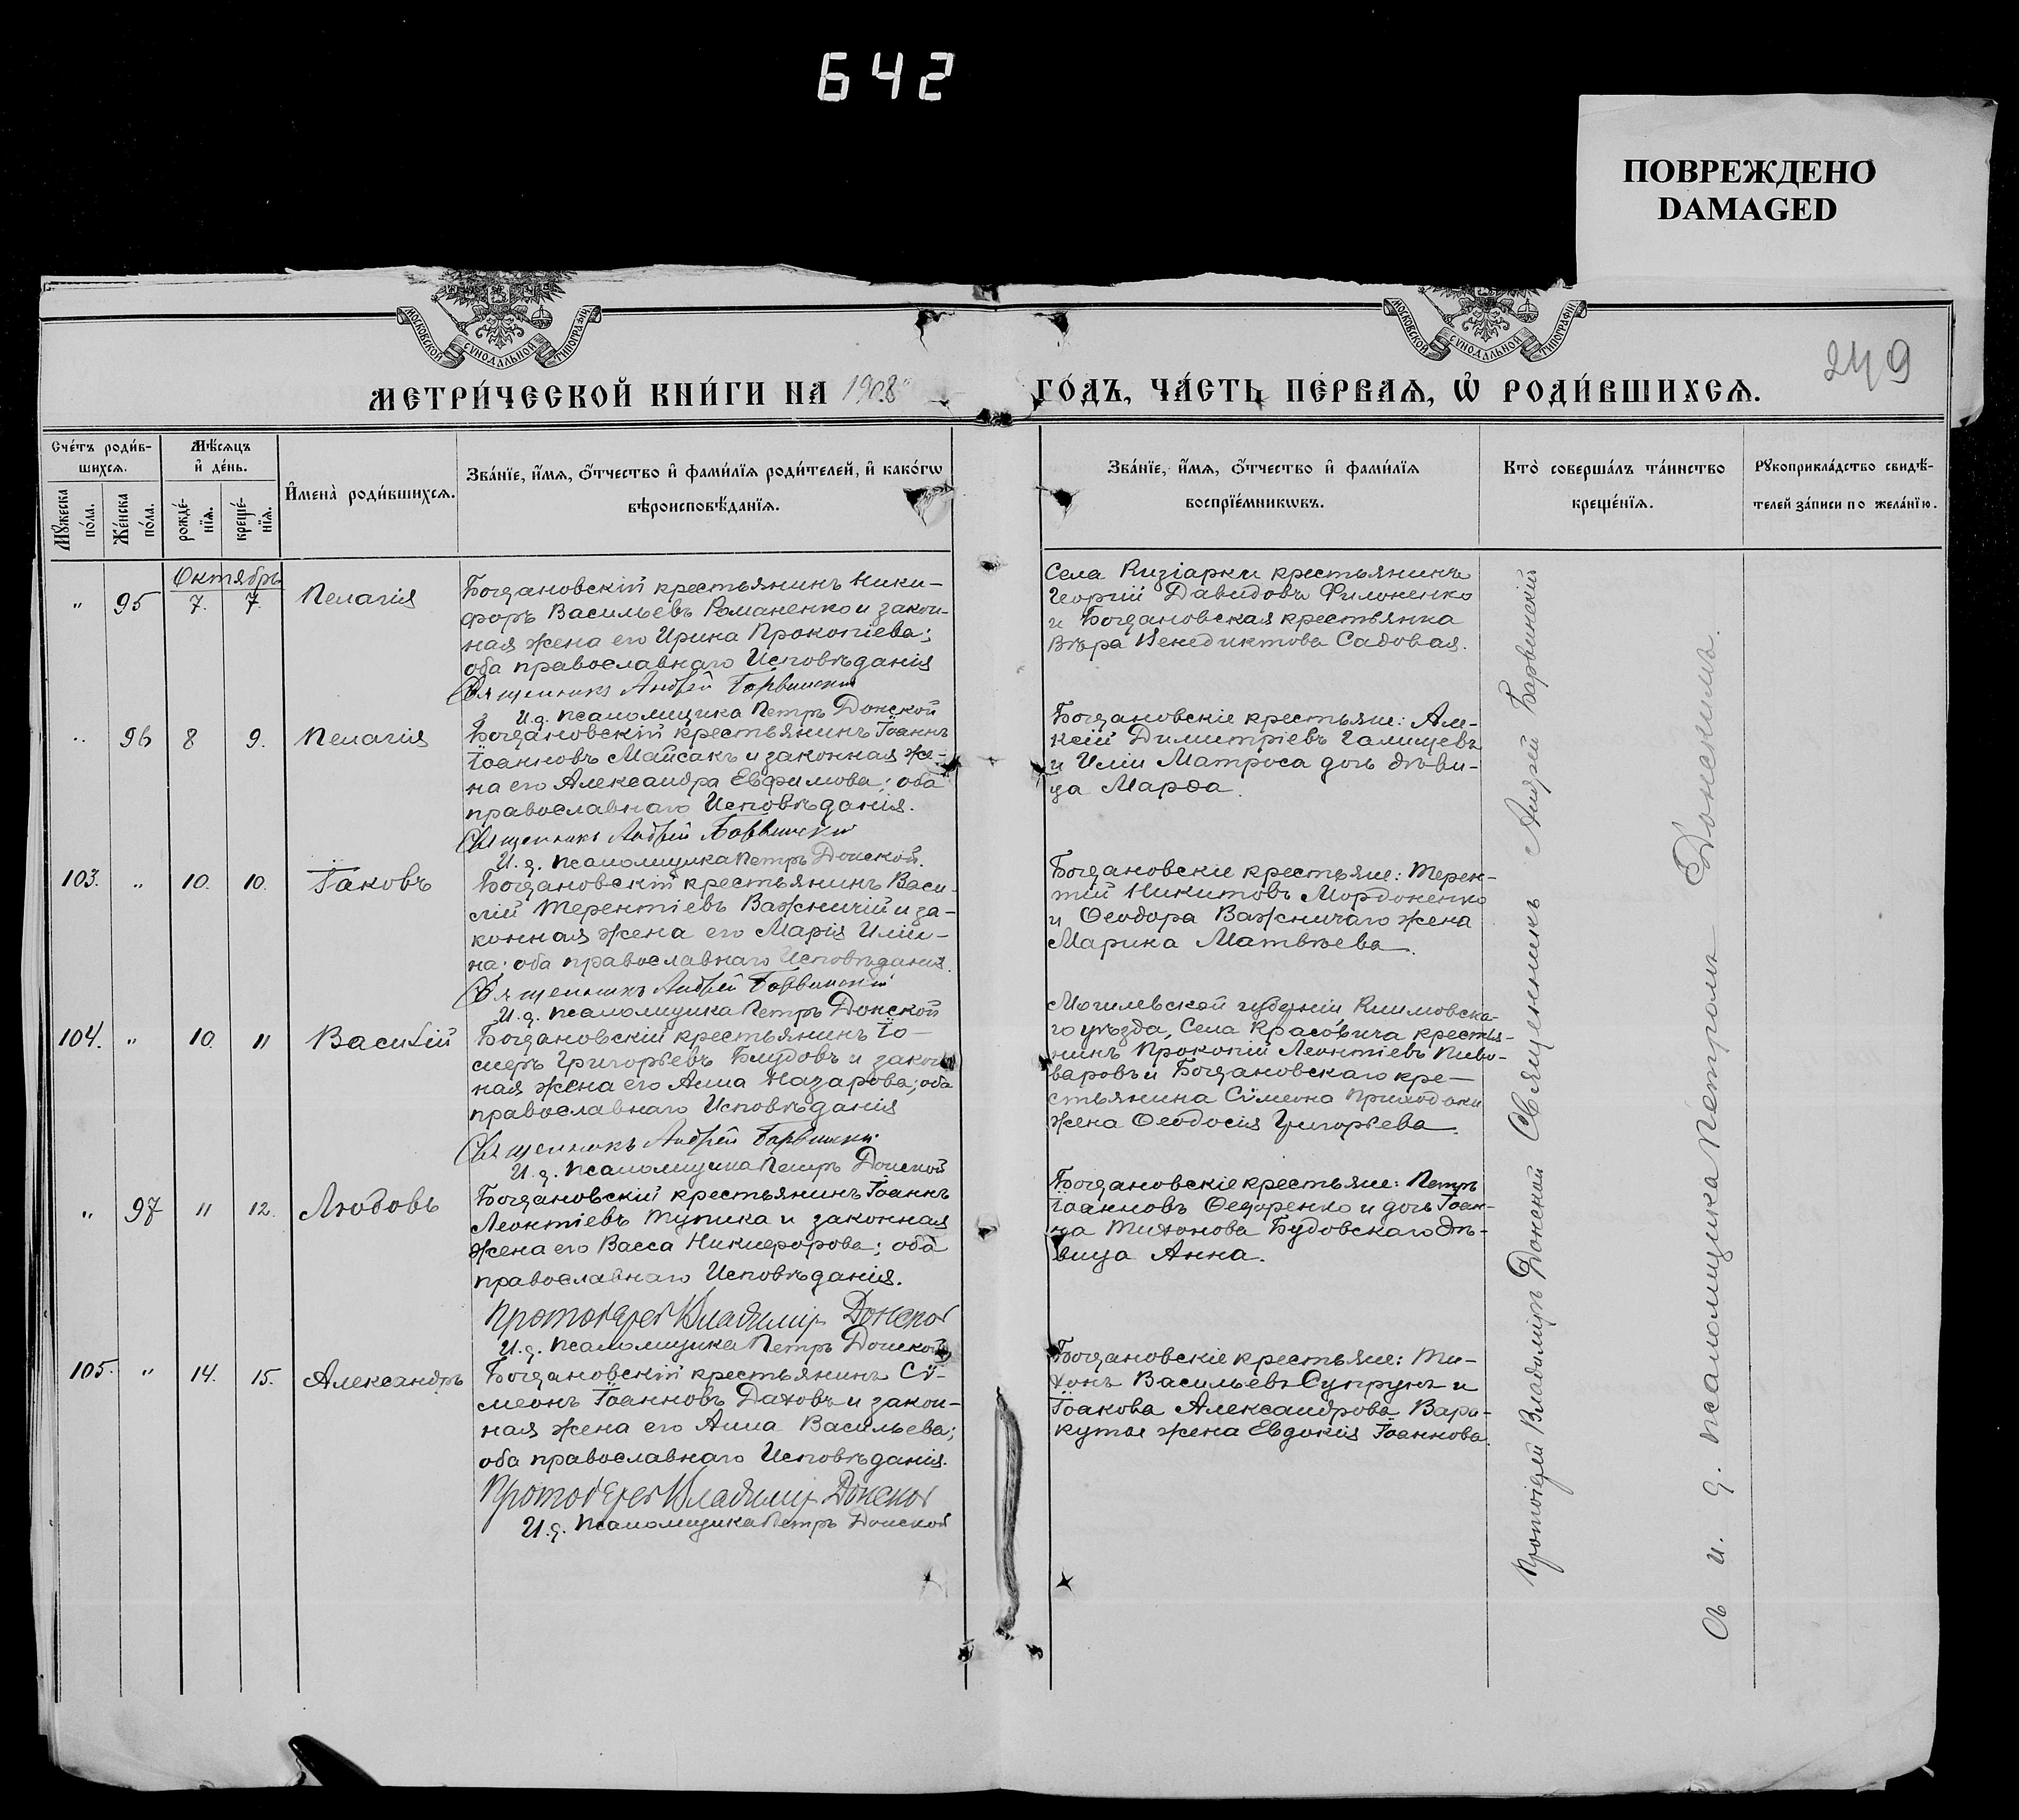 642
ПОВРЕЖДЕНО
DAMAGED
МОСКОВСКОЙ СѴНОДАЛЬНОЙ ТИПОГРАФІИ
МОСКОВСКОЙ СѴНОДАЛЬНОЙ ТИПОГРАФІИ
249
МЕТРИ́ЧЕСКОЙ КНИ́ГИ НА 1908
ГО́ДЪ, ЧА́СТЬ ПЕ́РВАѦ, Ѡ҆ РОДИ́ВШИХСѦ.
Сче́тъ роди́в-
шихсѧ.
Мѣ́сѧцъ
и҆ де́нь.
Мꙋ́жеска
по́ла.
Же́нска
по́ла.
рожде́-
нїѧ.
креще́-
нїѧ.
И҆мена̀ роди́вшихсѧ.
Зва́нїе, и҆́мѧ, ѻ҆́тчество и҆ фами́лїѧ роди́телей, и҆ како́гѡ
вѣроисповѣ́данїѧ.
Зва́нїе, и҆́мѧ, ѻ҆́тчество и҆ фами́лїѧ
воспрїе́мникѡвъ.
Кто̀ соверша́лъ та́инство
креще́нїѧ.
Рꙋкоприкла́дство свидѣ́-
телей за́писи по жела́нїю.
Октябрь
" 95 7. 7. Пелагія
Богдановскій крестьянинъ Ники-
форъ Васильевъ Романенко и закон-
ная жена его Ирина Прокопіева;
оба православнаго Исповѣданія
Священникъ Андрей Барвинскій
И. д. псаломщика Петръ Донской
Села Кизіарки крестьянинъ
Георгій Давидовъ Филоненко
и Богдановская крестьянка
Вѣра Венедиктова Садовая.
" 96 8 9. Пелагія
Богдановскій крестьянинъ Іоаннъ
Іоанновъ Майсакъ и законная же-
на его Александра Евфимова; оба
православнаго Исповѣданія.
Священникъ Андрей Барвинскій
И. д. псаломщика Петръ Донской.
Богдановскіе крестьяне: Але-
ксій Димитріевъ Галищевъ
и Иліи Матроса дочь дѣви-
ца Марѳа.
103. " 10. 10. Іаковъ
Богдановскій крестьянинъ Васи-
лій Терентіевъ Важничій и за-
конная жена его Марія Иліи-
на; оба православнаго Исповѣданія.
Священникъ Андрей Барвинскій
И. д. псаломщика Петръ Донской
Богдановскіе крестьяне: Терен-
тій Никитовъ Мордоненко
и Ѳеодора Важничаго жена
Марина Матвѣева.
104. " 10. 11 Василій
Богдановскій крестьянинъ Іо-
сифъ Григорьевъ Блудовъ и закон-
ная жена его Анна Назарова; оба
православнаго Исповѣданія
Священникъ Андрей Барвинскій
И. д. псаломщика Петръ Донской
Могилевской губерніи Климовска-
го уѣзда, Села Красовича крестья-
нинъ Прокопій Леонтіевъ Пиво-
варовъ и Богдановскаго кре-
стьянина Сѵмеона Приходоки
жена Ѳеодосія Григорьева.
" 97 11 12. Любовь
Богдановскій крестьянинъ Іоаннъ
Леонтіевъ Тупика и законная
жена его Васса Никифорова; оба
православнаго Исповѣданія.
Протоіерей Владимір Донской
И. д. псаломщика Петръ Донской
Богдановскіе крестьяне: Петръ
Іоанновъ Ѳедоренко и дочь Іоан-
на Тихонова Будовскаго дѣ-
вица Анна.
105. " 14. 15. Александръ
Богдановскій крестьянинъ Сѵ-
меонъ Іоанновъ Даховъ и закон-
ная жена его Анна Васильева;
оба православнаго Исповѣданія.
Протоіерей Владимір Донской
И. д. псаломщика Петръ Донской
Богдановскіе крестьяне: Ти-
хонъ Васильевъ Супрунъ и
Іоакова Александрова Вара-
кутая жена Евдокія Іоаннова.
Протоіерей Владиміръ Донской Священникъ Андрей Барвинскій
Съ и. д. псаломщика Петромъ Донскимъ.